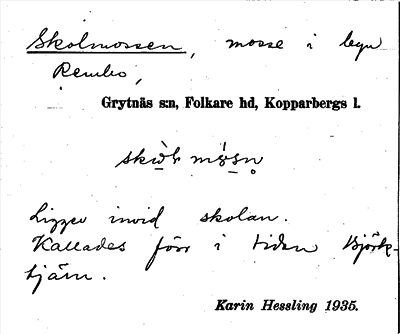 Skolmossen, mosse i byn
Rembo,
Grytnäs s:n, Folkare hd, Kopparbergs l.
Ligger invid skolan.
Kallades förr i tiden Björk-
tjärn.
Karin Hessling 1935.